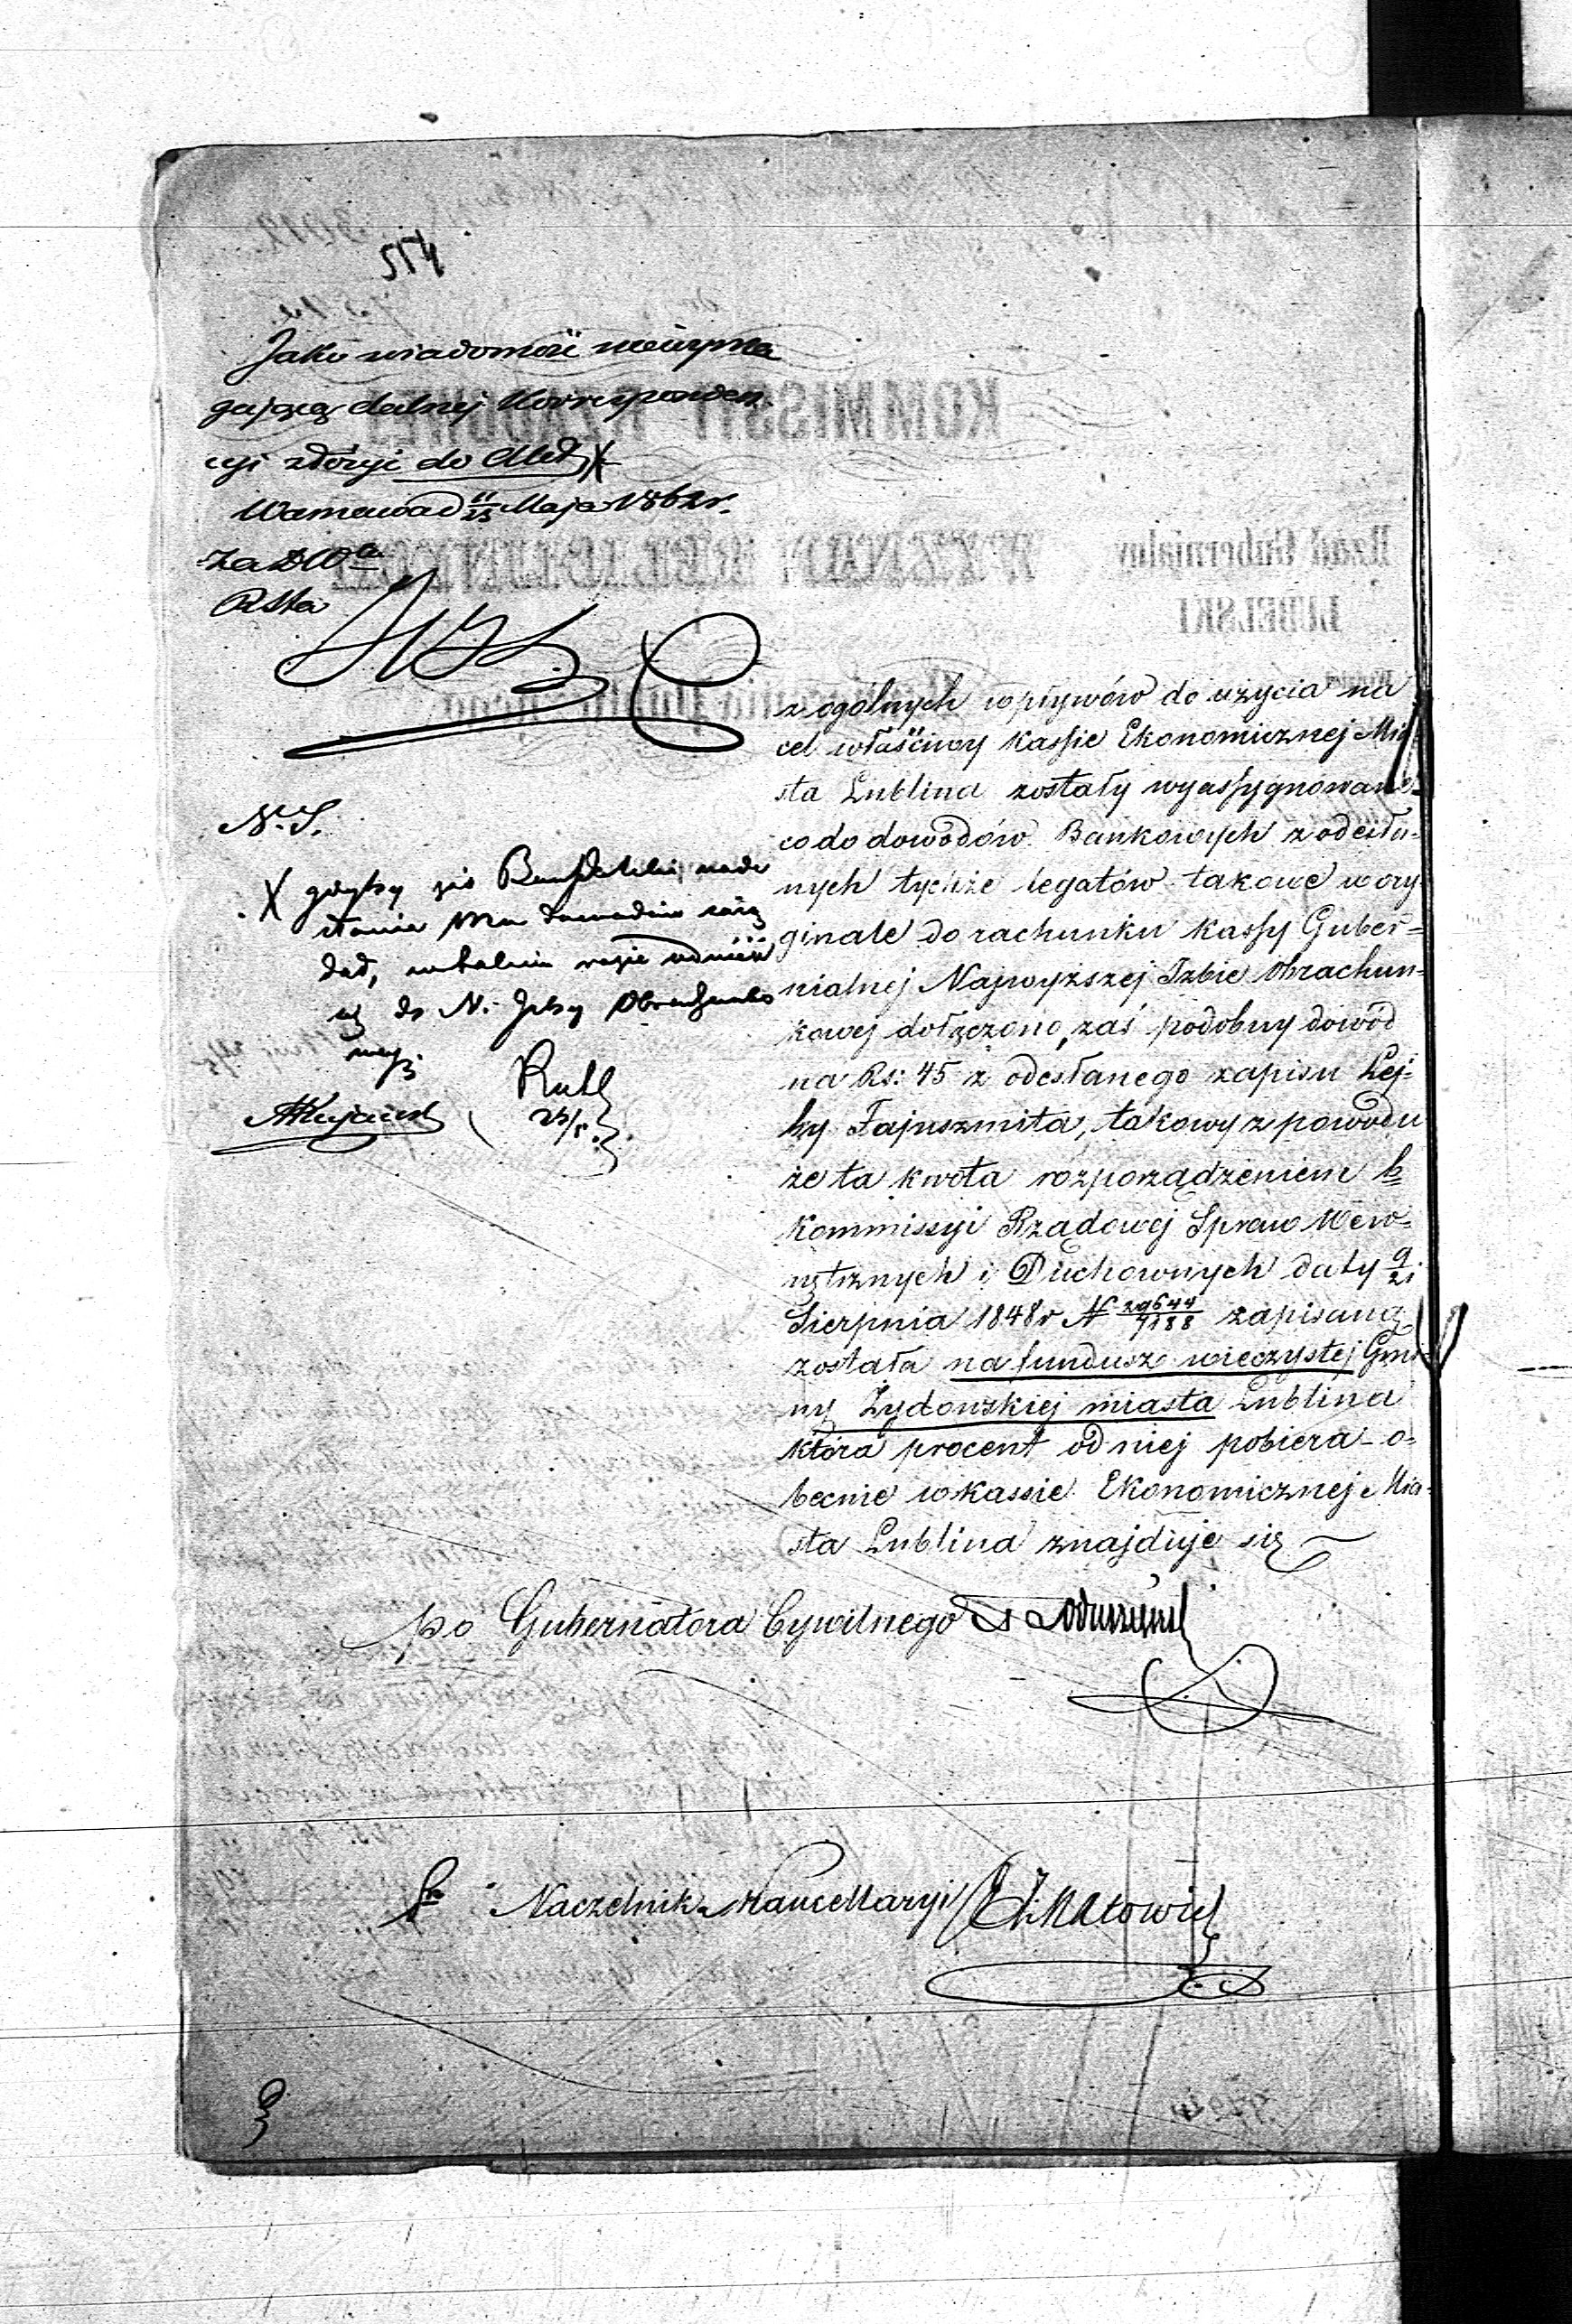 574
Jako wiadomość niewyma
gającą dalszej Korresponden
cyi złożyć do Akt X
Warszawa d 11/23 Maja 1862 r.
Za D W
N. S.
X gdyby zaś nade
słania
dał, w takim razie odnieść
się do N. Izby Obrachunko
wej.
23/5.
z ogólnych wpływów do użycia na
cel właściwy Kassie Ekonomicznej Mia
sta Lublina zostały wyassygnowane
co do dowodów Bankowych z odesła-
nych tychże legatów takowe w ory
ginale do rachunku Kassy Guber=
nialnej Najwyższej Izbie Obrachun=
kowej dołączono, zaś podobny dowód
na Rs: 45 z odesłanego zapisu Lej-
by Fajnszmita, takowy z powodu
że ta kwota rozporządzeniem b
Kommissyi Rządowej Spraw Wew=
nętrznych i Duchownych daty 9/21
Sierpnia 1848 r N 29644/7188 zapisaną
została na fundusz wieczystej Gmi
ny Żydowskiej miasta Lublina
która procent od niej pobiera o=
becnie w kassie Ekonomicznej Mia-
sta Lublina znajduje się
p.o Gubernatora Cywilnego
Naczelnik Kancellaryi